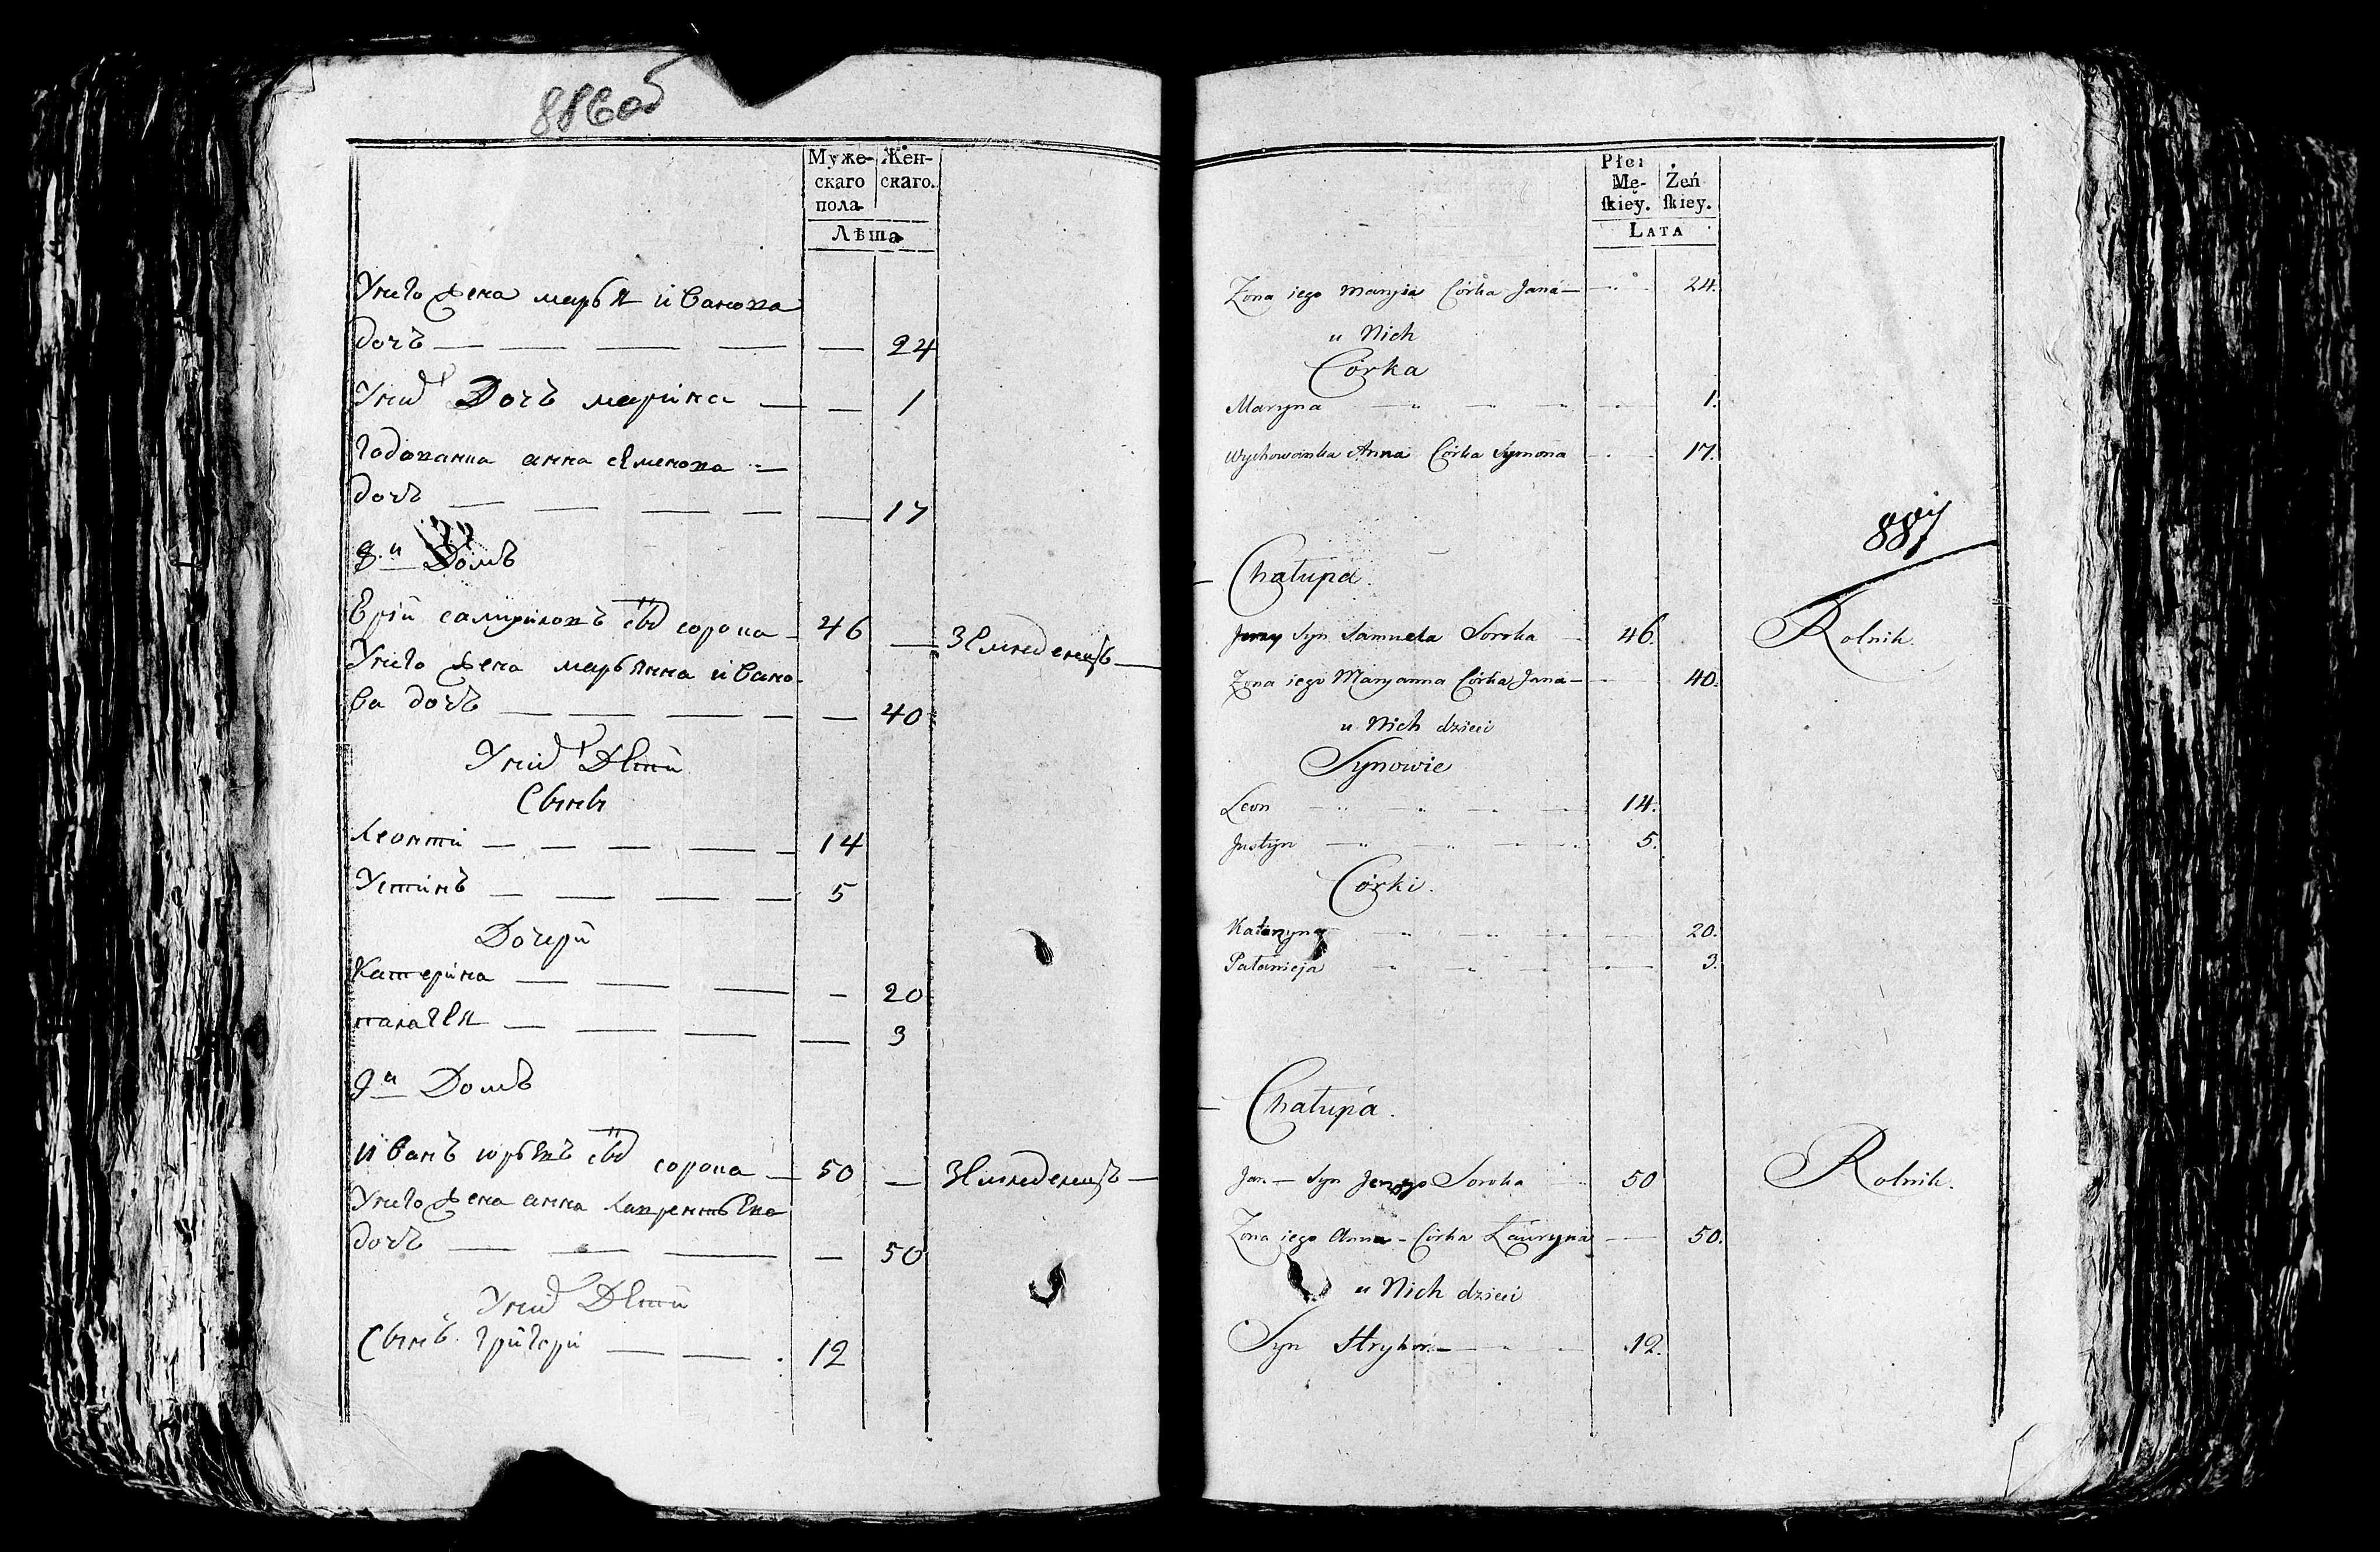 886об
Муже-
скаго
пола
Жен-
скаго.
Лѣта
Унего жена марья ивано­ва
дочь 24
Унихъ Дочь марина 1
годованка анна семенова
дочь 17
8й Домъ
Ерій самуйловъ сынъ сорока 46 — Земледелецъ
Унего жена марьянна ивано-
ва дочь 40
Унихъ Дети
Сыны
Леонти 14
Устинъ 5
Дочери
Катерина 20
палагея 3
9й Домъ
Иванъ юрьевъ сынъ сорока 50 — Земледелецъ
Унего жена анна лаврентьева
дочь 50
Унихъ Дети
Сынъ григори 12
Płci
Mę-
ſkiey.
Żeń
ſkiey.
LATA
Żona iego Maryia Córka Jana 24.
u Nich
Córka
Maryna 1.
Wychowanka Anna Córka Symona 17.
887
Chałupa.
Jerzy Syn Samuela Soroka 46. Rolnik.
Żona iego Maryanna Córka Jana 40.
u Nich dzieci
Synowie
Leon 14.
Justyn 5.
Córki.
Katarzyna 20.
Pałanieja 3.
Chałupa.
Jan Syn Jerzego Soroka 50 Rolnik.
Żona iego Anna Córka Łauryna 50.
u Nich dzieci
Syn Hryhor 12.